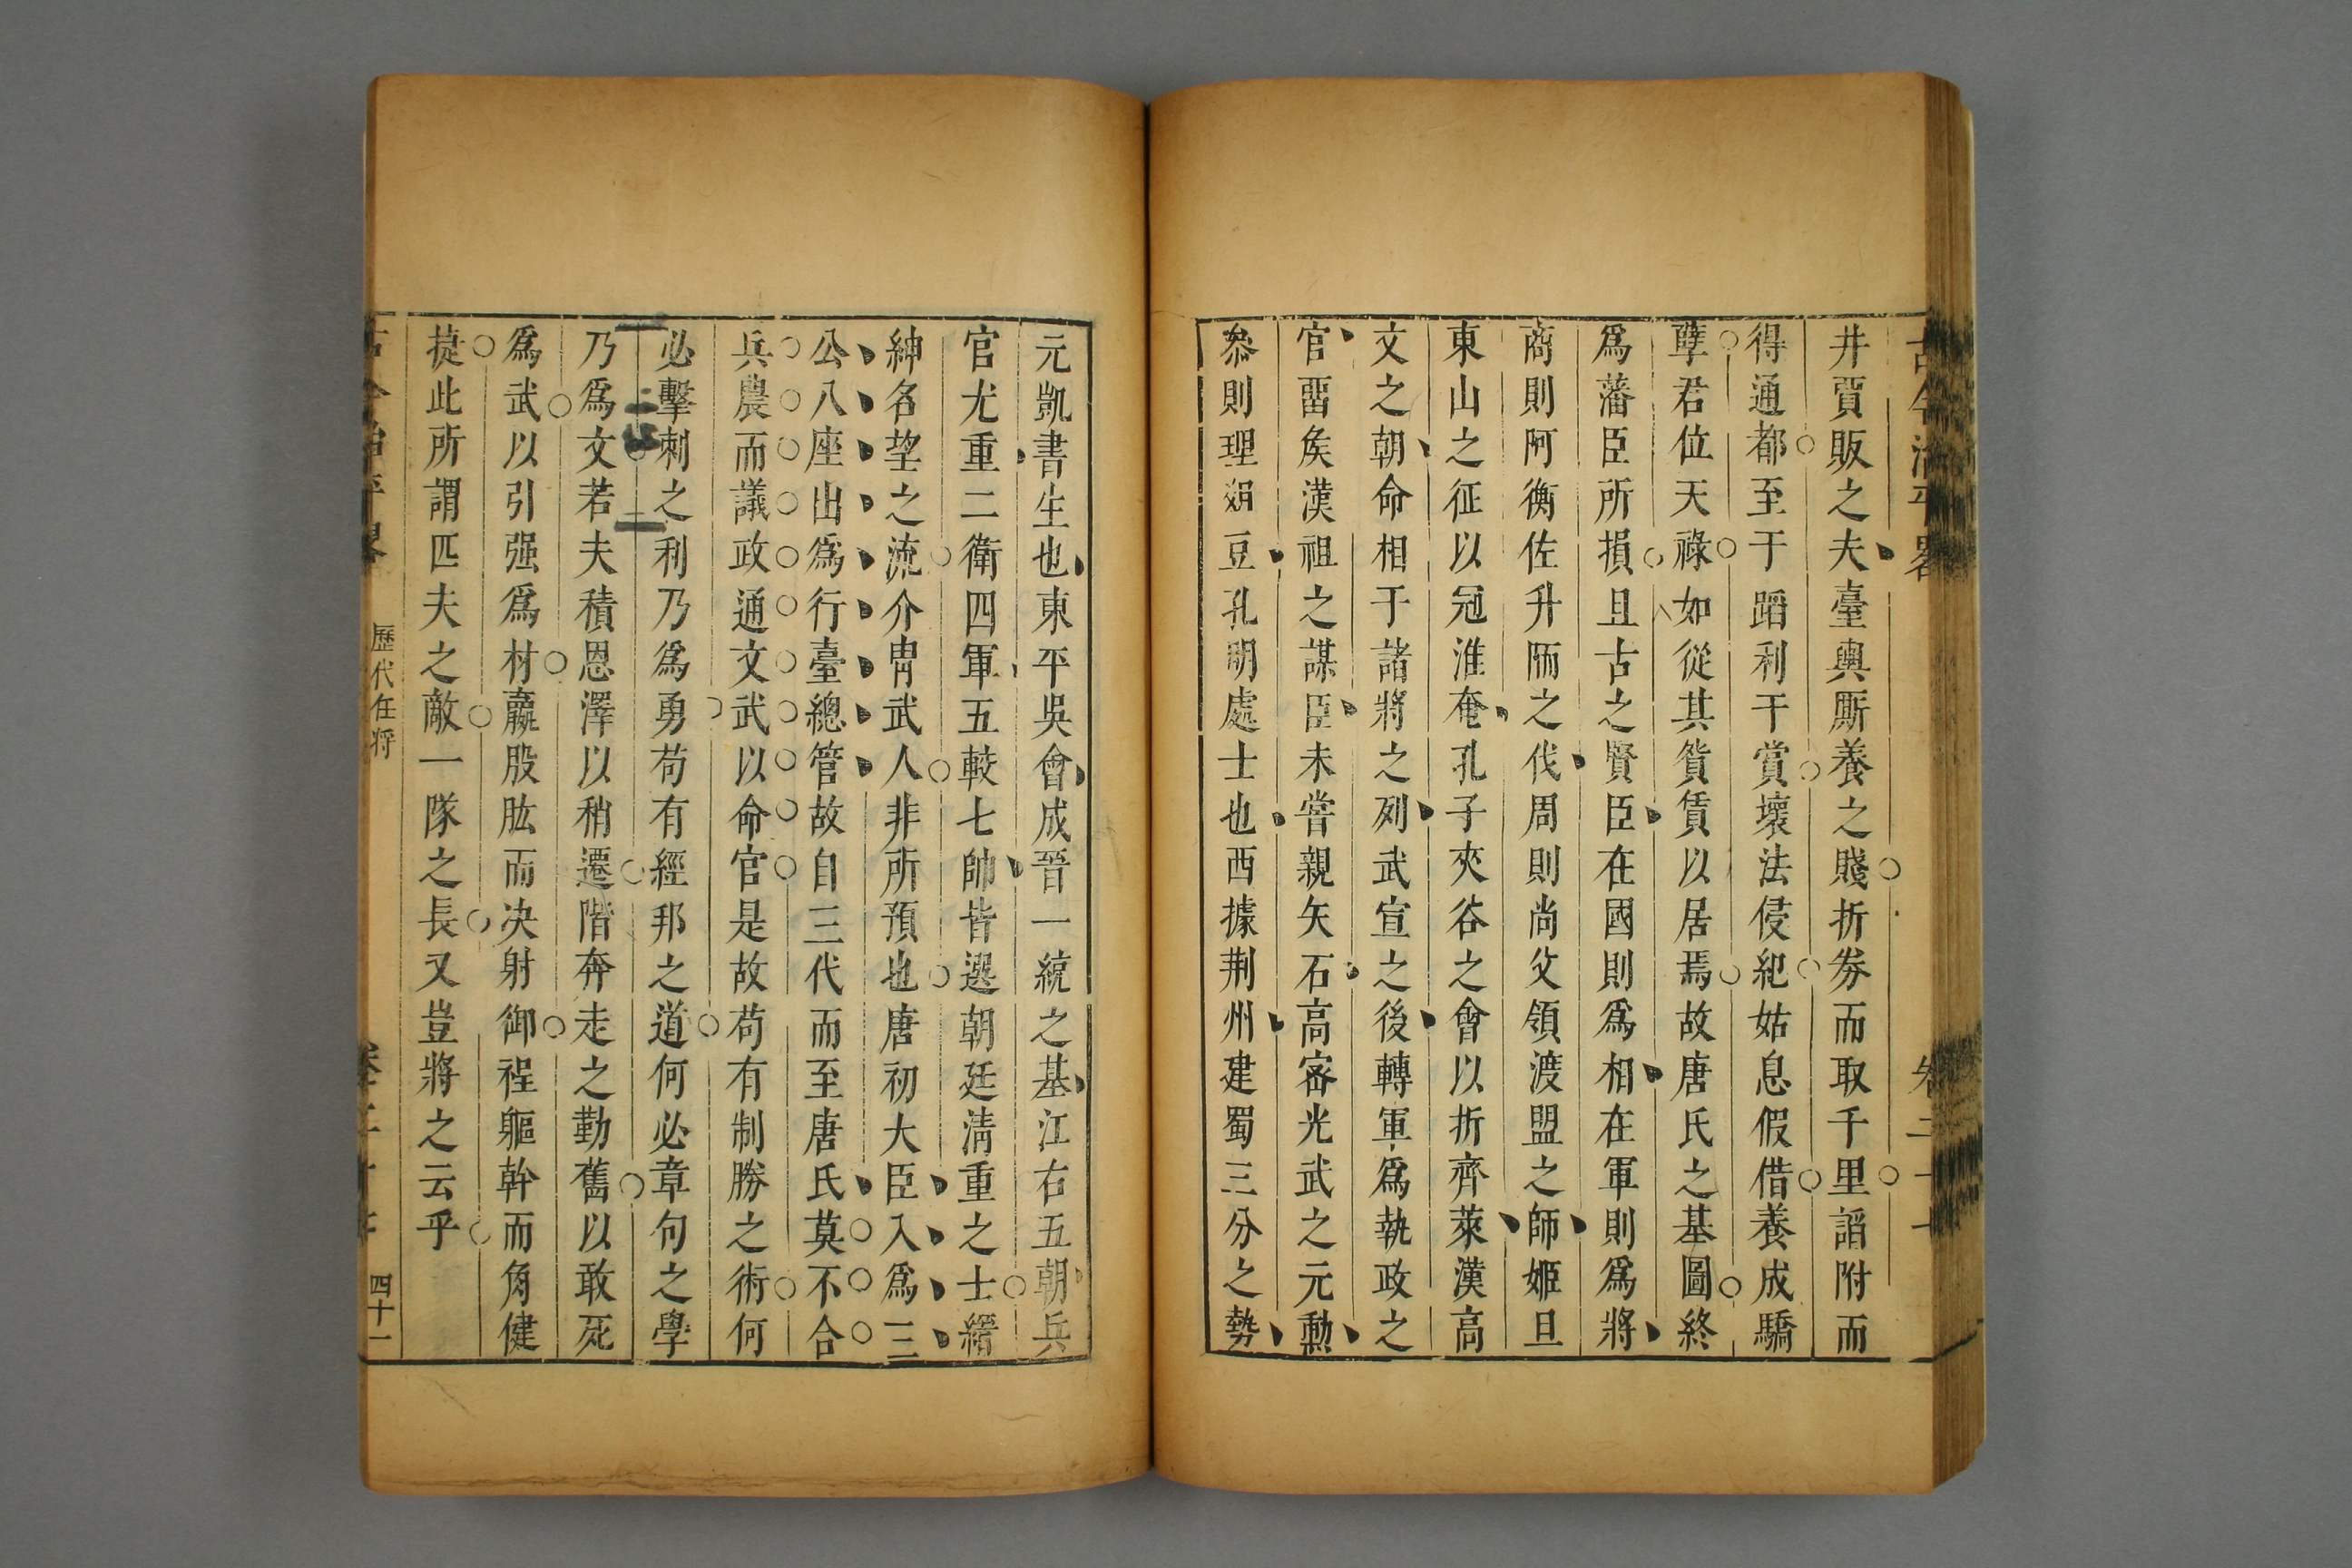 古今治平畧 卷二十七
井賈販之夫臺輿厮養之賤折券而取千里謟附而
得通都至于蹈利干賞壞法侵紀姑息假借養成驕
孽君位天祿如從其貲賃以居焉故唐氏之基圖終
爲藩臣所損且古之賢臣在國則爲相在軍則爲將
商則阿衡佐升陑之伐周則尚父領渡盟之師姬旦
東山之征以冠淮奄孔子夾谷之會以折齊萊漢高
文之朝命相于諸將之列武宣之後轉軍爲執政之
官畱矦漢祖之謀臣未嘗親矢石高密光武之元勳
叅則理爼豆孔明處士也西據荆州建蜀三分之勢
元凱書生也東平吳會成晉一統之基江右五朝兵
官尤重二衛四軍五較七帥皆選朝廷淸重之士縉
紳名望之流介胄武人非所預也唐初大臣入爲三
公八座出爲行臺總管故自三代而至唐氏莫不合
兵農而議政通文武以命官是故苟有制勝之術何
必擊刺之利乃爲勇苟有經邦之道何必章句之學
乃爲文若夫積恩澤以稍遷階奔走之勤舊以敢死
爲武以引强爲材蠃股肱而决射御裎軀幹而角健
㨗此所謂匹夫之敵一隊之長又豈將之云乎
古今治平畧 歷代任將 卷二十七 四十一